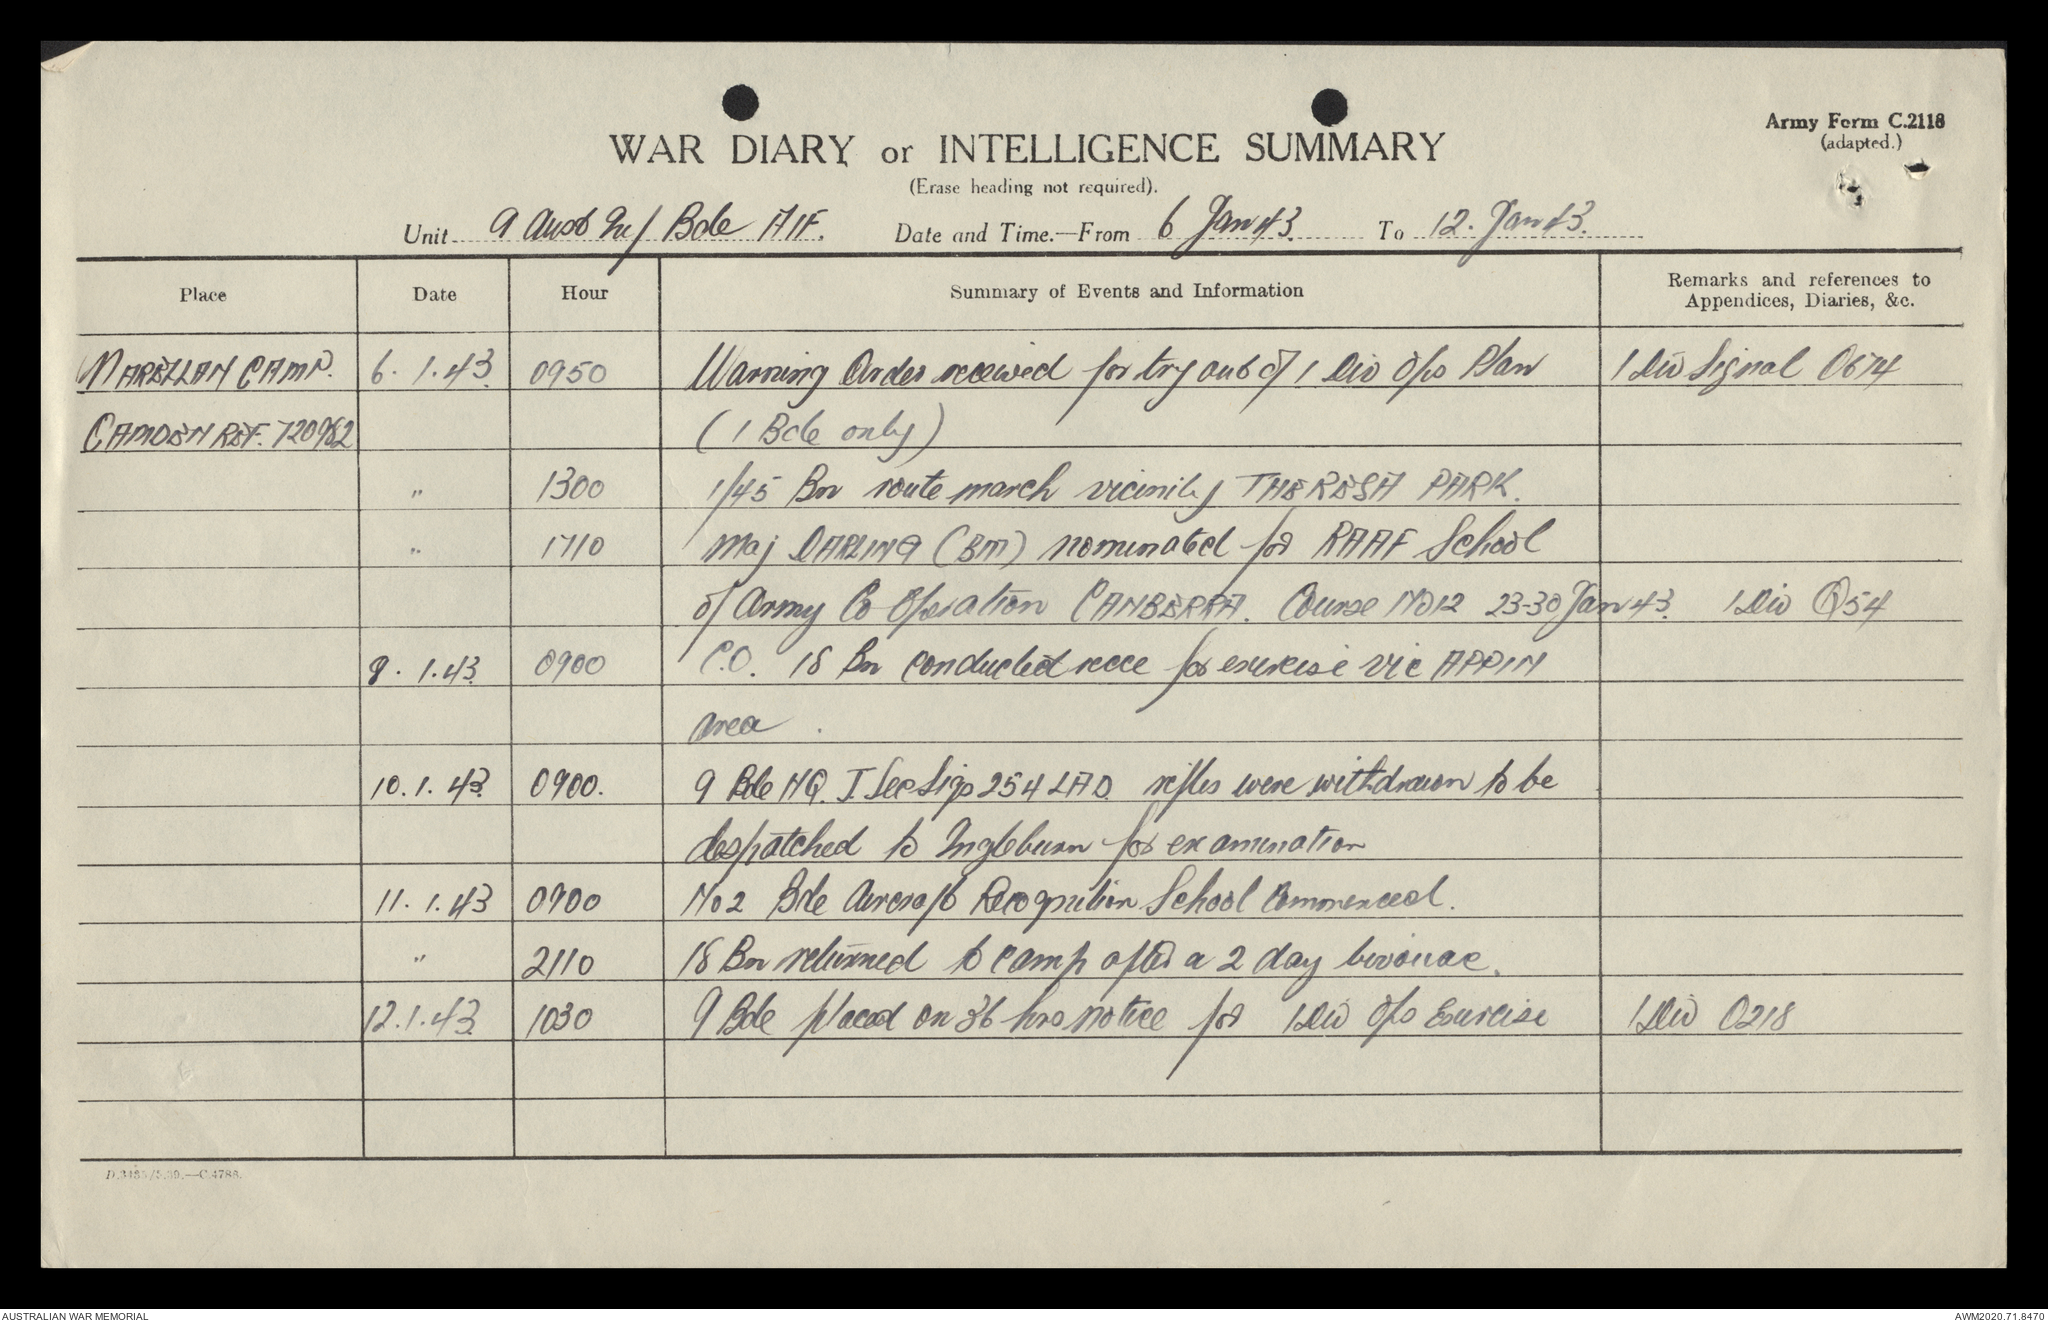 Army Form C.2118
(adapted.)
WAR DIARY or INTELLIGENCE SUMMARY
(Erase heading not required).
Unit 9 Aust Inf Bde AIF. Date and Time.—From 6 Jan 43. To 12. Jan 43.
Place Date Hour Summary of Events and Information Remarks and references to
Appendices, Diaries, &c.
NARELLAN CAMP. 6. 1.43. 0950 Warning Order received for try out of 1 Div Ops Plan 1 Div Signal O674
CAMDEN REF. 720962 (1 Bde only)
" 1300 1/45 Bn route march vicinity THERESA PARK.
" 1710 Maj DARLING (BM) nominated for RAAF School
of Army Co Operation CANBERRA. Course NO12 23-30 Jan 43. 1 Div Q54
9. 1.43. 0900 C.O. 18 Bn conducted recce for exercise vic APPIN
area.
10. 1. 43. 0900. 9 Bde HQ. J Sec Sigs 254 LAD. rifles were withdrawn to be
despatched to Ingleburn for examination
11. 1.43 0900 No2 Bde Aircraft Recognition School Commenced.
" 2110 18 Bn returned to camp after a 2 day bivouac.
12.1.43. 1030 9 Bde placed on 36 hrs notice for 1 Div Ops Exercise 1 Div O218
D.3485/5.39.—C.4788.
AUSTRALIAN WAR MEMORIAL AWM2020.71.8470